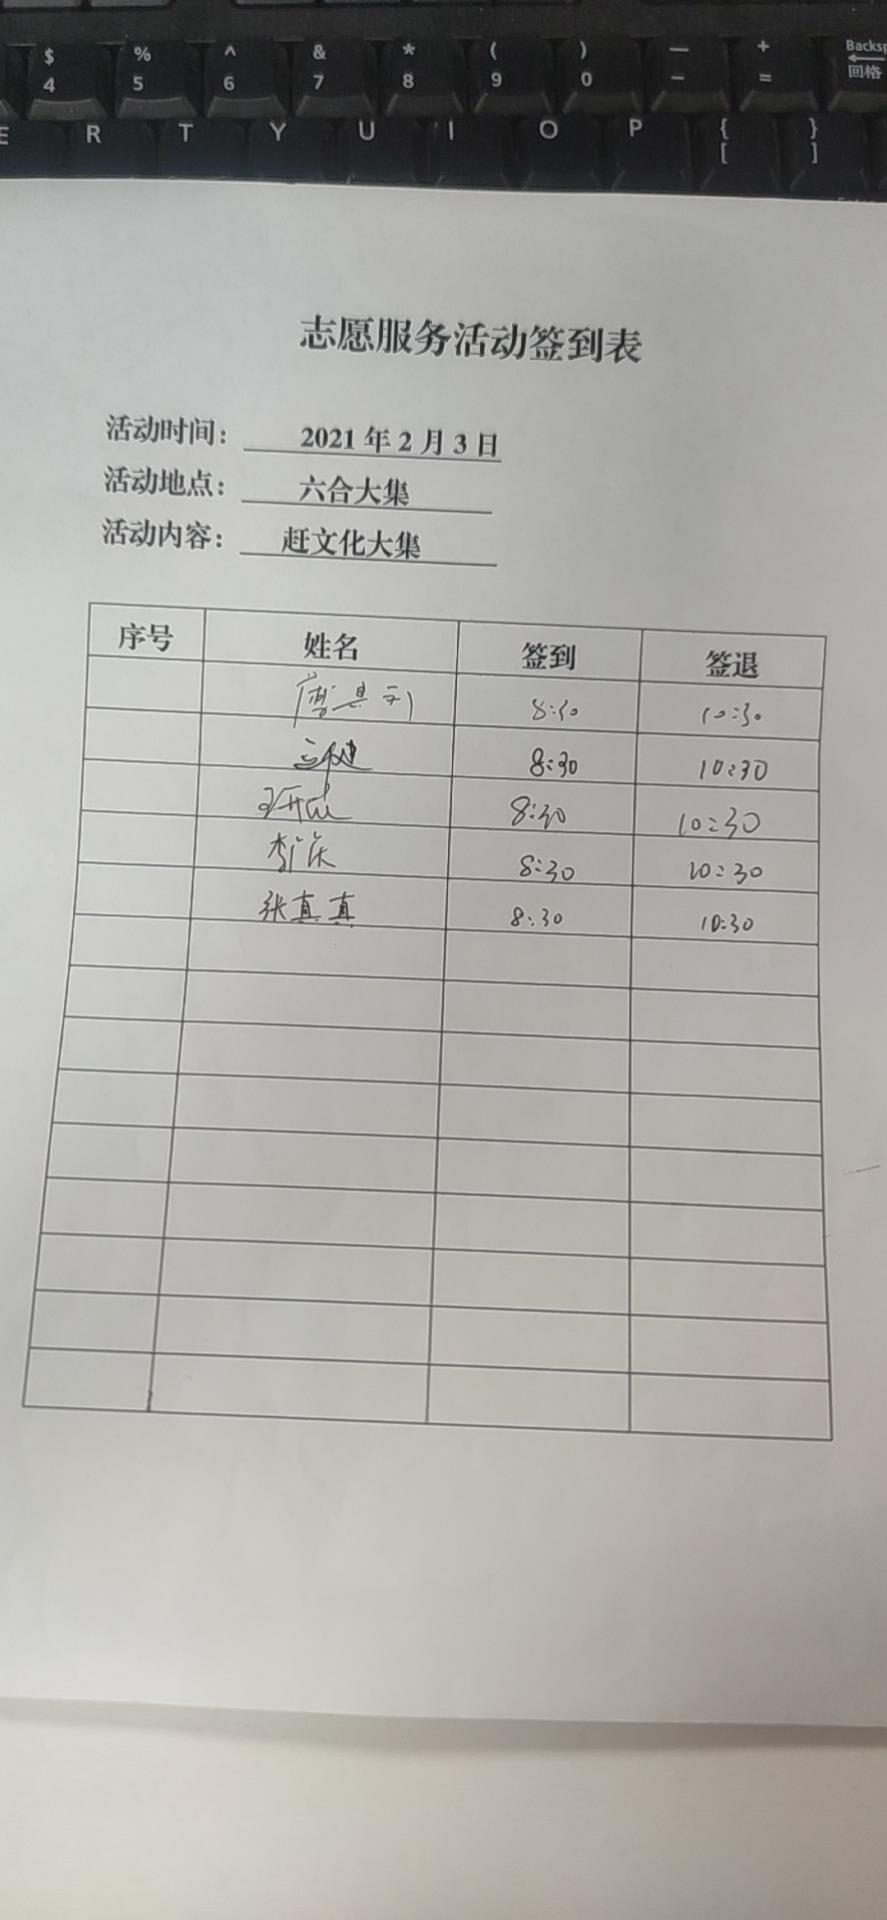 $ % ^ & * ( ) — + Backsp
4 5 6 7 8 9 0 - = 回格
E R T Y U I O P { }
[ ]
志愿服务活动签到表
活动时间： 2021 年 2 月 3 日
活动地点： 六合大集
活动内容： 赶文化大集
序号 姓名 签到 签退
8:30 10:30
8:30 10:30
8:30 10:30
8:30 10:30
张真真 8:30 10:30